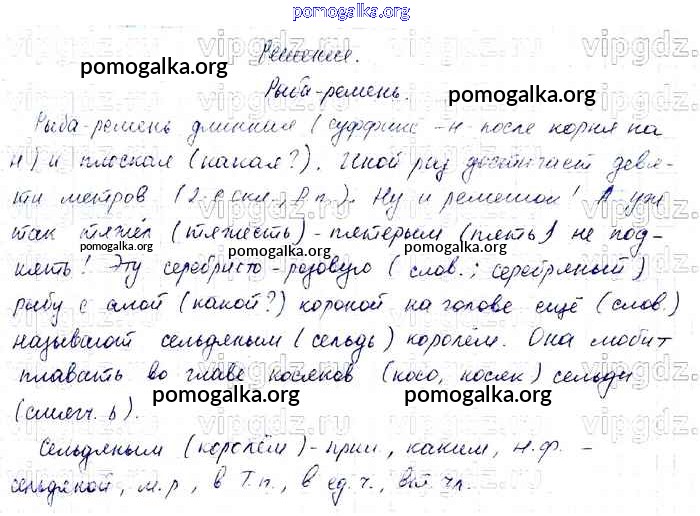 pomogalka.org
Решение.
pomogalka.org
Рыба-ремень.
pomogalka.org
Рыба-ремень длинная (суффикс -н- после корня на
н) и плоская (какая?). Иной раз достигает девя-
ти метров (2-е скл., Р.п.). Ну и ремешок! А уж
так тяжёл (тяжесть) - пятерым (пять) не под-
pomogalka.org pomogalka.org pomogalka.org
нять! Эту серебристо-розовую (слов.; серебряный)
рыбу с алой (какой?) короной на голове ещё (слов.)
называют сельдяным (сельдь) королём. Она любит
плавать во главе косяков (косо, косяк) сельди
(смягч. ь).
pomogalka.org pomogalka.org
Сельдяным (королём) - прил., каким, н.ф. -
сельдяной, м.р., в Т.п., в ед.ч., вт. чл.
vipgdz.ru